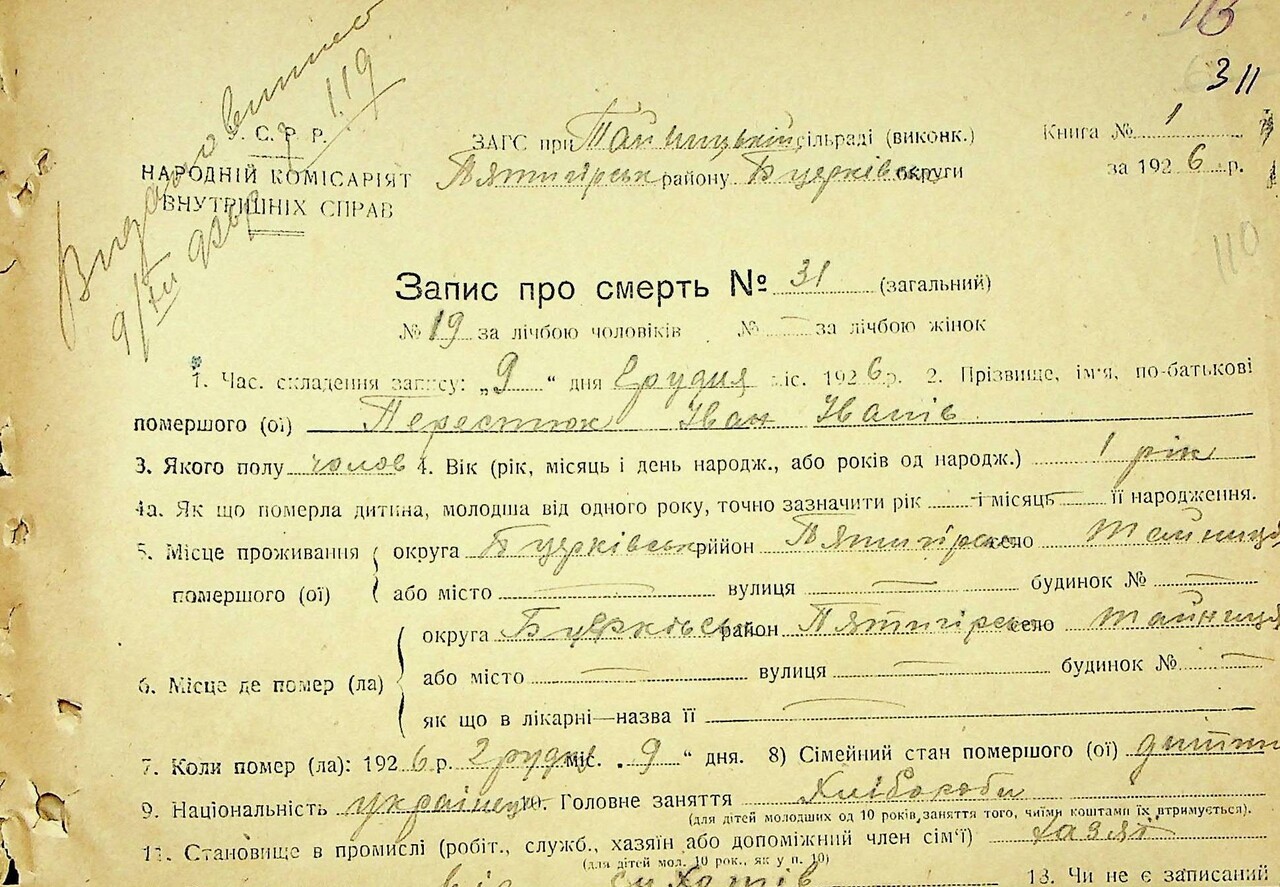 113
311
У. С. Р. Р.
НАРОДНІЙ КОМІСАРІЯТ
ВНУТРІШНІХ СПРАВ
119
ЗАГС при Тайницькій сільраді (виконк.)
Пятигірськ району Бцерківськ округи
Книга № 1
за 1926 р.
110
Запис про смерть № 31 (загальний)
№ 19 за лічбою чоловіків № — за лічбою жінок
1. Час складення запису: „9“ дня Грудня міс. 1926 р. 2. Прізвище, ім'я, по-батькові
помершого (ої) Пересток Іван Іванів
3. Якого полу чолов 4. Вік (рік, місяць і день народж., або років од народж.) 1 рік
4а. Як що померла дитина, молодша від одного року, точно зазначити рік — і місяць — її народження.
5. Місце проживання помершого (ої) округа Бцерківськ район Пятигірськ село Тайниця
або місто — вулиця — будинок № —
6. Місце де помер (ла) округа Бцерківськ район Пятигірськ село Тайниця
або місто — вулиця — будинок № —
як що в лікарні—назва її —
7. Коли помер (ла): 1926 р. Грудня міс. „9“ дня. 8) Сімейний стан помершого (ої) дитин
9. Національність українець 10. Головне заняття Хлібороби
(для дітей молодших од 10 років, заняття того, чиїми коштами їх втримується).
11. Становище в промислі (робіт., служб., хазяїн або допоміжний член сім'ї) хазят
(для дітей мол. 10 рок., як у п. 10)
13. Чи не є записаний